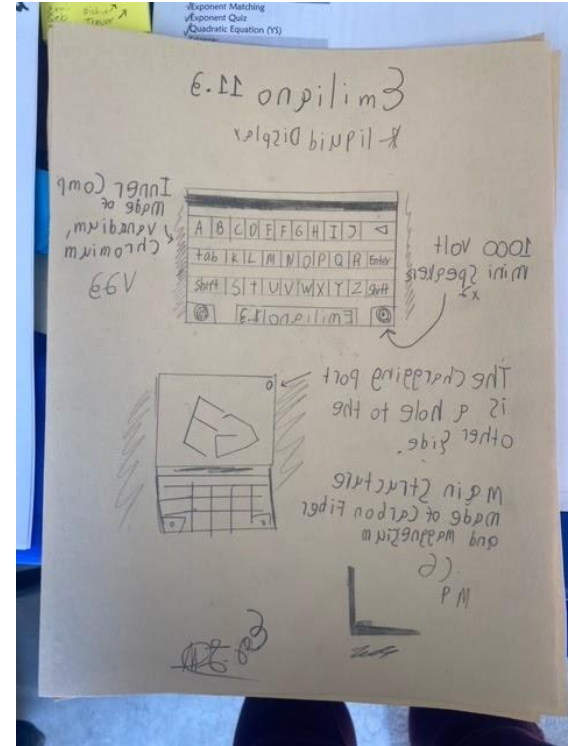 √Exponent Matching
√Exponent Quiz
√Quadratic Equation (YS)
Trevor
Emiliano 11.3
* Liquid Display
Inner Comp
Made of
Vanadium,
Chromium
A B C D E F G H I J
tab K L M N O P Q R Enter
Shift S T U V W X Y Z Shift
Emiliano 11.3
1000 Volt
mini Speakers
x2
The Chargging port
is a hole to the
other side.
Main Structure
made of Carbon Fiber
and maggenesium